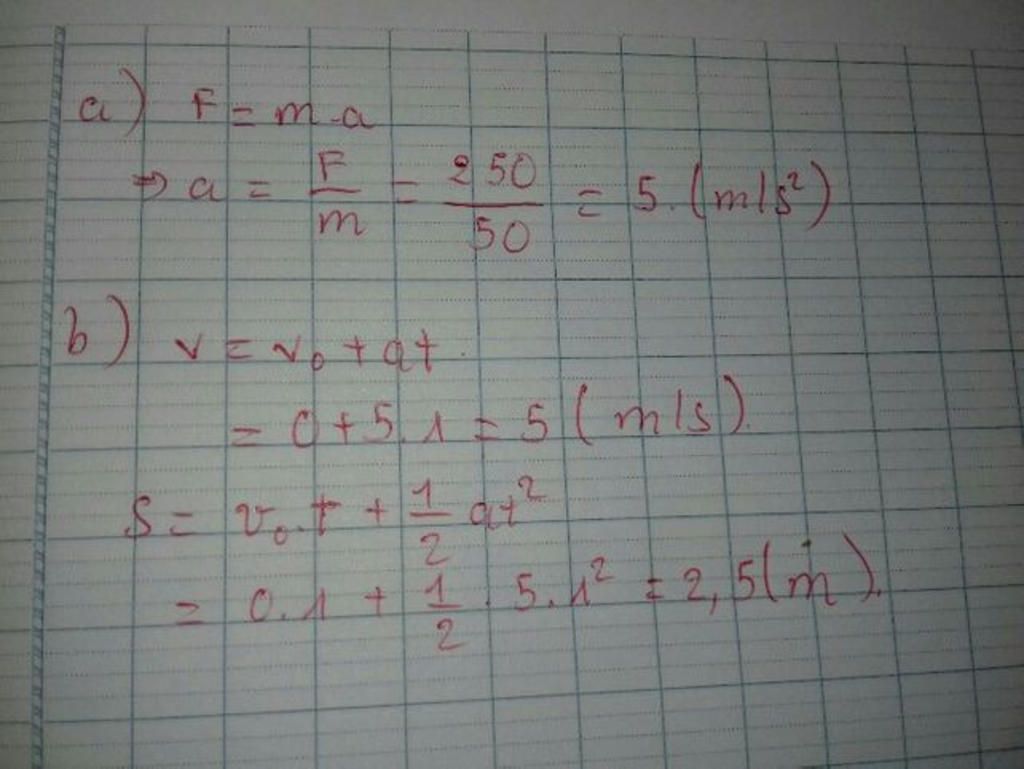 a) F = m.a
⇒ a = F/m = 250/50 = 5.(m/s²)
b) v = v₀ + at.
= 0 + 5.1 = 5 (m/s).
S = v₀.t + 1/2 at²
= 0.1 + 1/2 . 5.1² = 2,5(m).